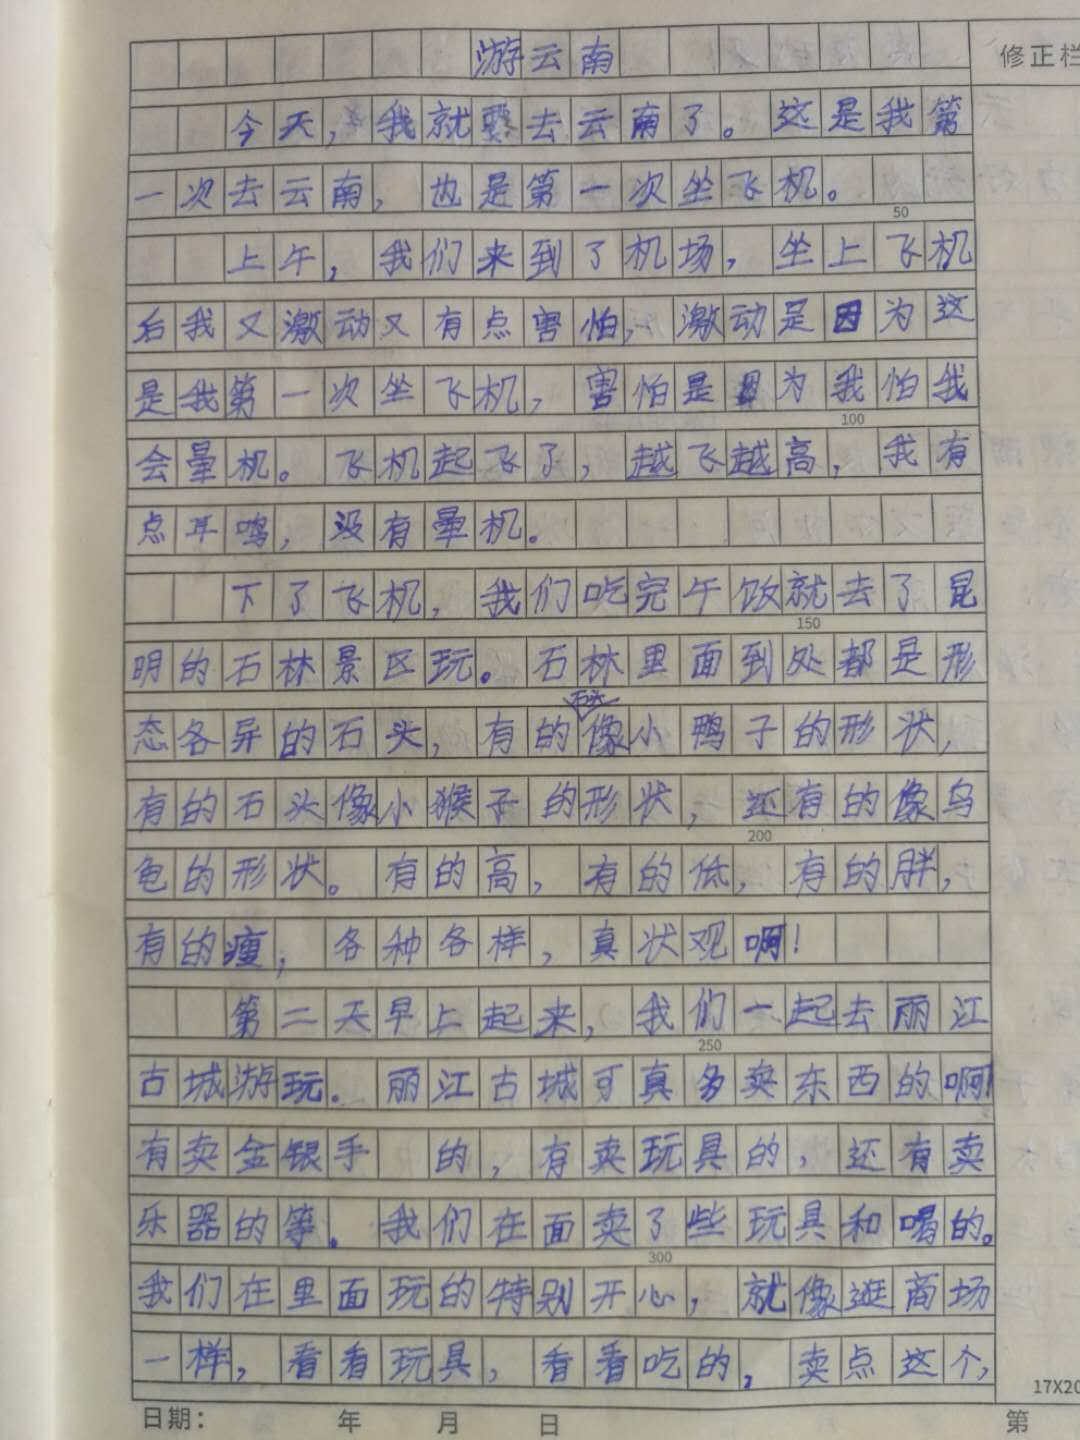 游云南
修正栏
今天，我就要去云南了。这是我第
一次去云南，也是第一次坐飞机。
50
上午，我们来到了机场，坐上飞机
后我又激动又有点害怕，激动是因为这
是我第一次坐飞机，害怕是因为我怕我
100
会晕机。飞机起飞了，越飞越高，我有
点耳鸣，没有晕机。
下了飞机，我们吃完午饭就去了昆
150
明的石林景区玩。石林里面到处都是形
石头
态各异的石头，有的像小鸭子的形状，
有的石头像小猴子的形状，还有的像乌
200
龟的形状。有的高，有的低，有的胖，
有的瘦，各种各样，真状观啊！
第二天早上起来，我们一起去丽江
250
古城游玩。丽江古城可真多卖东西的啊！
有卖金银手 的，有卖玩具的，还有卖
乐器的等。我们在面卖了些玩具和喝的。
300
我们在里面玩的特别开心，就像逛商场
一样，看看玩具，看看吃的，卖点这个，
17X20
日期： 年 月 日 第